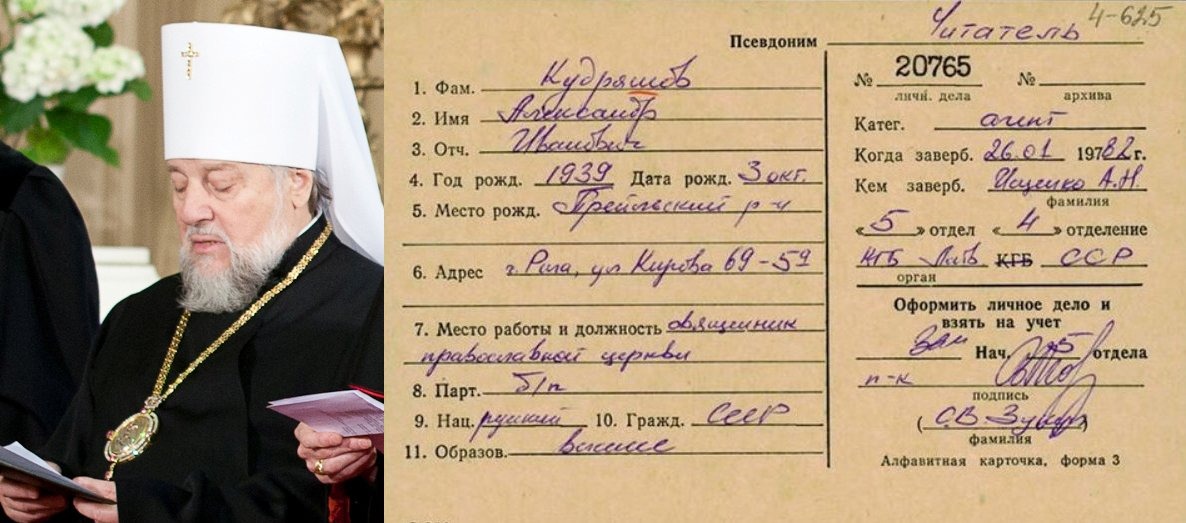 4-625
Псевдоним Читатель
1. Фам. Кудряшов
2. Имя Александр
3. Отч. Иванович
4. Год рожд. 1939 Дата рожд. 3 окт.
5. Место рожд. Прейльский р-н
6. Адрес г. Рига, ул Кирова 69-59
7. Место работы и должность священник
православной церкви
8. Парт. б/п
9. Нац. русский 10. Гражд. СССР
11. Образов. высшее
№ 20765 №
личн. дела архива
Катег. агент
Когда заверб. 26.01 1982 г.
Кем заверб. Ищенко А.Н.
фамилия
«5» отдел «4» отделение
КГБ Латв КГБ ССР
орган
Оформить личное дело и
взять на учет
Зам Нач. 5 отдела
п-к
подпись
(С.В.)
фамилия
Алфавитная карточка, форма 3